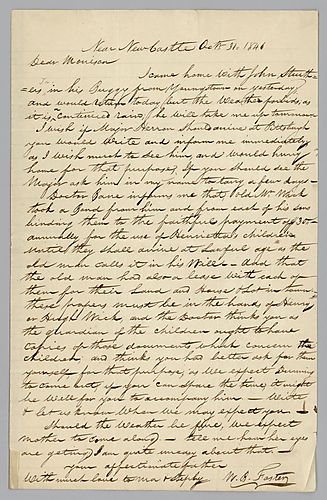 Near New Castle Octr 31. 1846
Dear Morrison
I came home with John Struth=
=es in his Buggy from Youngstown on yesterday
and would return today but the Weather forbids, as
it is continued rains, he will take me up tomorrow
I wish if Major Herron should arrive at Pittsburgh
you would write and inform me immediately
as I wish much to see him, and would hurry
home for that purpose, If you should see the
Major ask him in my name to tarry a few days
Doctor Bane informs me that old Mr Wick
took a Bond from him and from each of his sons
binding them to the faithful payment of $30—
annually for the use of Henrietta's children
until they shall arrive at Lawful age as the
old man calls it in his Will— And that
the old man had also a lease with each of
them for their Land and House & Lot in town
these papers must be in the hands of Henry
or Hugh Wick, and the Doctor thinks you as
the guardian of the children ought to have
Copies of those documents which concern the
children, and thinks you had better ask for them
yourself for that purpose, as we expect Dunning
to come out, if you can spare the time, it might
be Well for you to accompany him — Write
& let us know When we may expect you —
Should the Weather be fine, we expect
mother to come along — tell me how her eyes
are getting, I am quite uneasy about that. —
your affectionate father
With much love to Ma & Stephy W. B. Foster